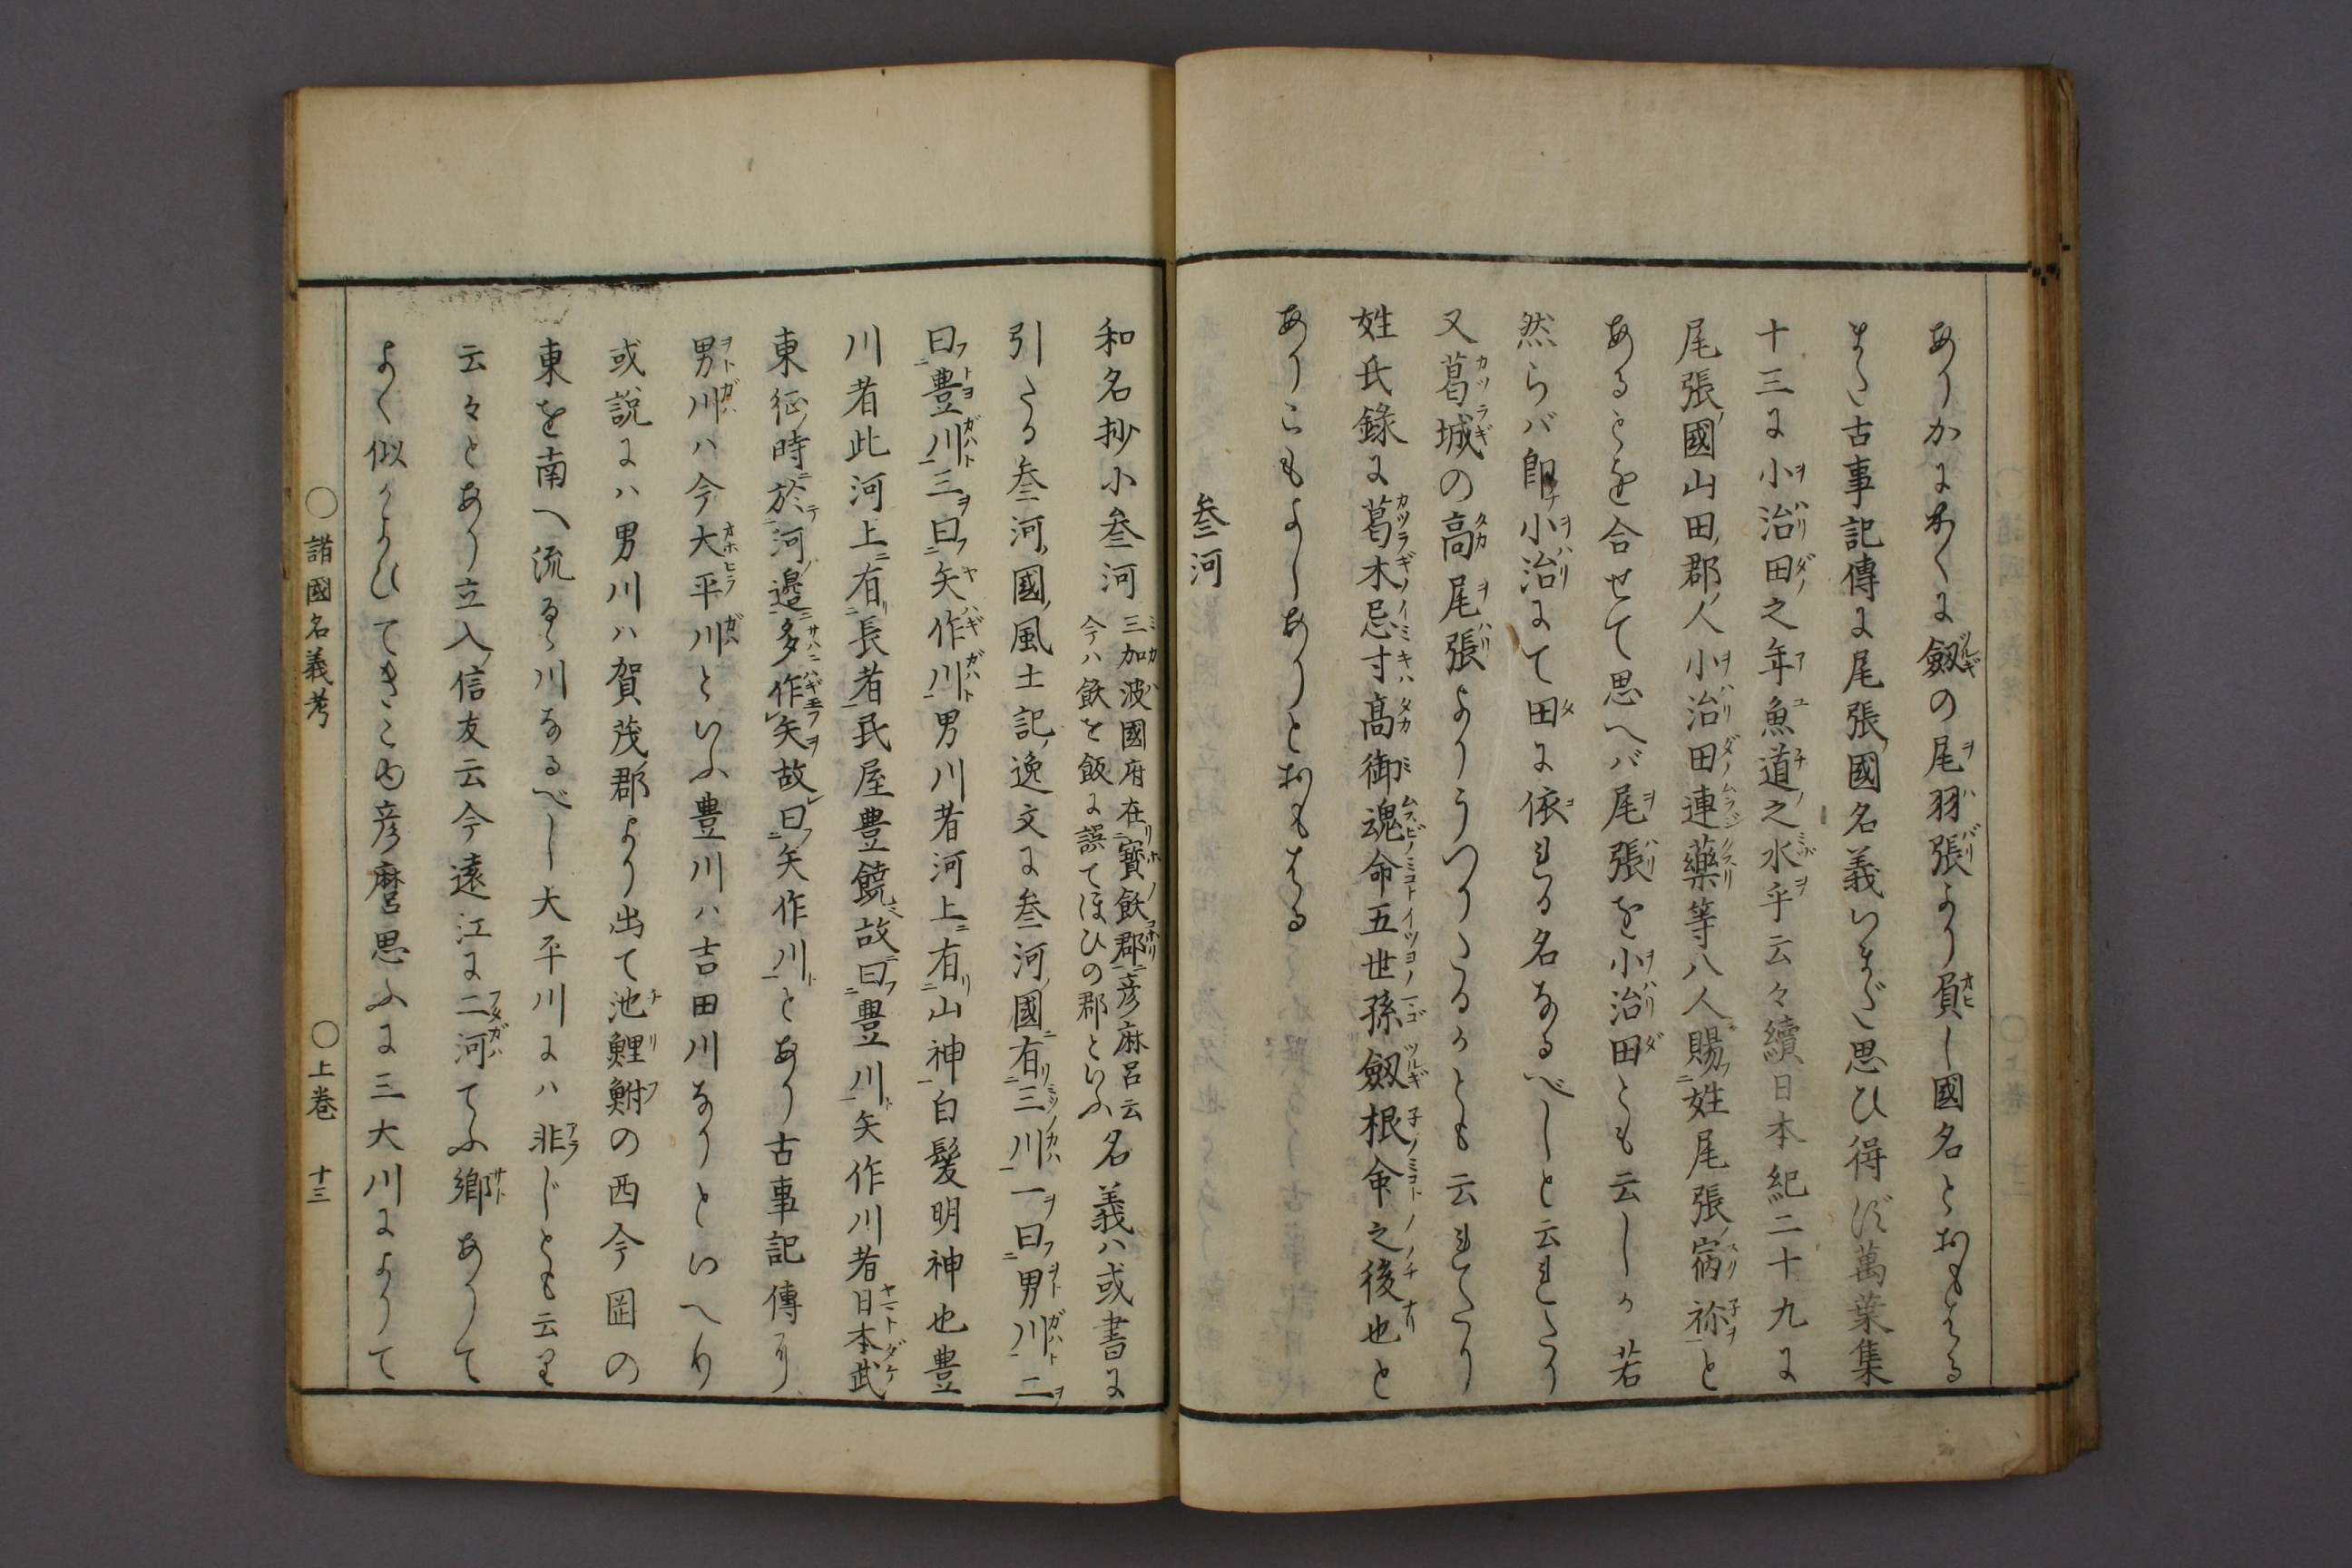 ありかまぬくは劔の尾羽張より負し國名とおもはる
また古事記傳に尾張國名義いまだ思ひ得ず萬葉集
十三に小治田之年魚道之水乎云々續日本紀二十九に
尾張國山田郡人小治田連藥等八人賜姓尾張宿祢と
あるとを合せて思へバ尾張を小治田とも云しか若
然らバ即小治にて田に依れる名なるべしと云れたり
又葛城の高尾張よりうつりたるかとも云れたり
姓氏錄に葛木忌寸高御魂命五世孫劔根命之後也と
ありこもよしありとおもはる
叄河
和名抄小叄河三加波國府在寶飫郡彦麻呂云今ハ飫を飯に誤てほひの郡といふ名義ハ或書に
引たる叄河國風土記逸文に叄河國有三川一曰男川二
曰豊川三曰矢作川男川者河上有山神白髪明神也豊
川者此河上有長者民屋豊饒故曰豊川矢作川者日本武
東征時於河邊多作矢故曰矢作川とあり古事記傳に
男川ハ今大平川といふ豊川ハ吉田川なりといへり
或說にハ男川ハ賀茂郡より出て池鯉鮒の西今岡の
東を南へ流るゝ川なるべし大平川にハ非じとも云り
云々とあり立入信友云今遠江に二河てふ郷ありて
よく似かよひてきこゆ彦麿思ふに三大川によりて
○諸國名義考 ○上卷 十三